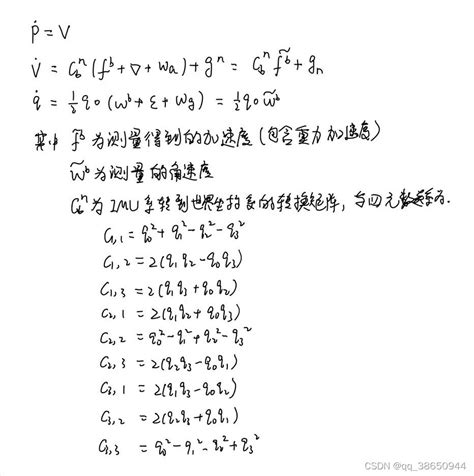 Ṗ = V
V̇ = C_b^n (f^b + ∇ + w_a) + g^n = C_b^n f̃^b + g_n
q̇ = ½ q∘(w^b + ε + w_g) = ½ q∘w̃^b
其中 f̃^b 为测量得到的加速度(包含重力加速度)
w̃^b 为测量的角速度
C_b^n 为 IMU 系转到世界坐标系的转换矩阵, 与四元数关系为.
C_{1,1} = q_0² + q_1² - q_2² - q_3²
C_{1,2} = 2(q_1q_2 - q_0q_3)
C_{1,3} = 2(q_1q_3 + q_0q_2)
C_{2,1} = 2(q_1q_2 + q_0q_3)
C_{2,2} = q_0² - q_1² + q_2² - q_3²
C_{2,3} = 2(q_2q_3 - q_0q_1)
C_{3,1} = 2(q_1q_3 - q_0q_2)
C_{3,2} = 2(q_2q_3 + q_0q_1)
C_{3,3} = q_0² - q_1² - q_2² + q_3²
CSDN @qq_38650944